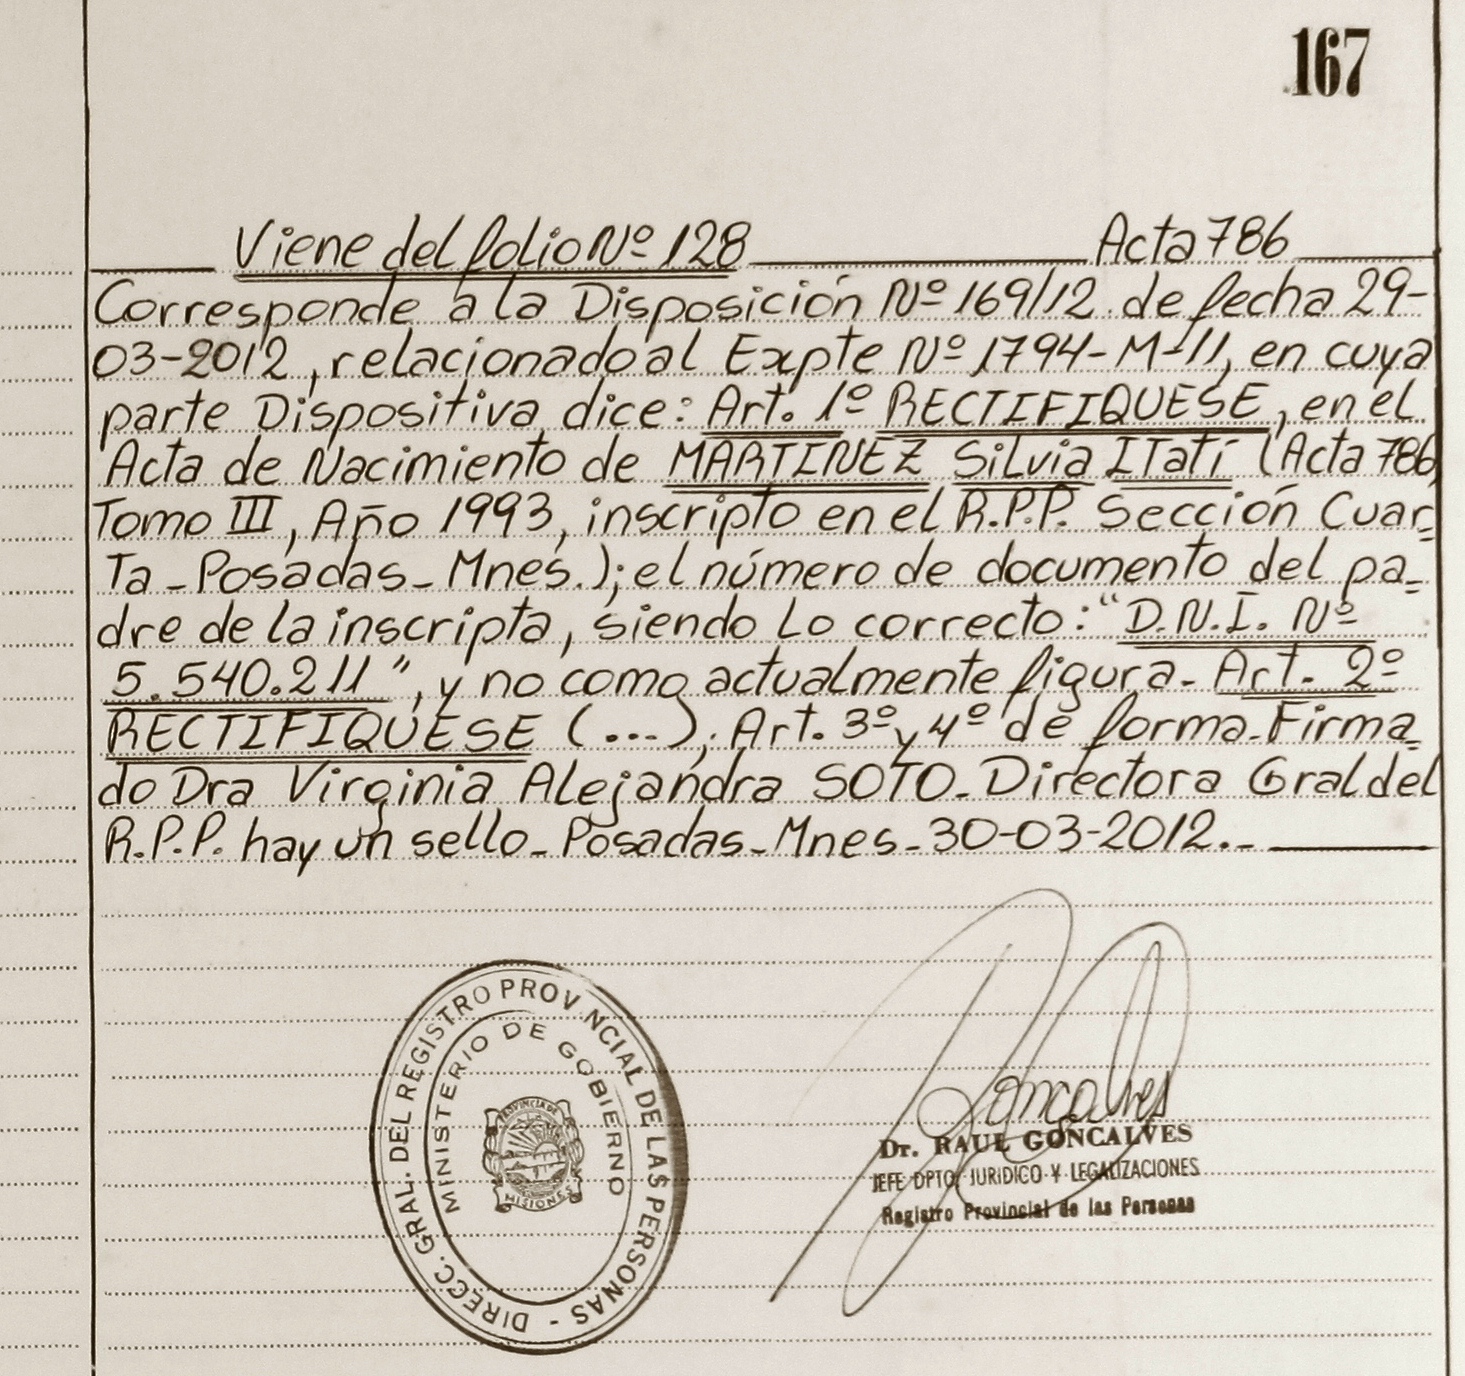 167
Viene del folio Nº 128 Acta 786
Corresponde a la Disposición Nº 169/12 de fecha 29-
03-2012, relacionado al Expte Nº 1794-M-11, en cuya
parte Dispositiva dice: Art. 1º RECTIFIQUESE, en el
Acta de Nacimiento de MARTINEZ Silvia ITatí (Acta 786,
Tomo III, Año 1993, inscripto en el R.P.P. Sección Cuar-
Ta - Posadas - Mnes.); el número de documento del pa-
dre de la inscripta, siendo Lo correcto: "D.N.I. Nº
5.540.211", y no como actualmente figura - Art. 2º
RECTIFIQUESE (...); Art. 3º y 4º de forma - Firma-
do Dra Virginia Alejandra SOTO - Directora Gral del
R.P.P. hay un sello - Posadas - Mnes - 30-03-2012.-
DIRECC. GRAL. DEL REGISTRO PROVINCIAL DE LAS PERSONAS -
MINISTERIO DE GOBIERNO
PROVINCIA DE
MISIONES
Goncalves
Dr. RAUL GONCALVES
JEFE DPTO. JURIDICO Y LEGALIZACIONES
Registro Provincial de las Personas